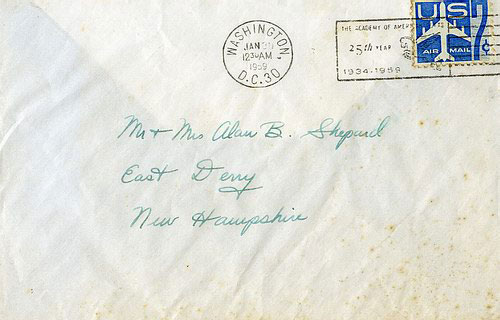 WASHINGTON,
JAN 30
12 30 AM
1959
D.C. 30
THE ACADEMY OF AMER
25th YEAR
1934-1959
US
AIR MAIL
7¢
Mr + Mrs Alan B. Shepard
East Derry
New Hampshire